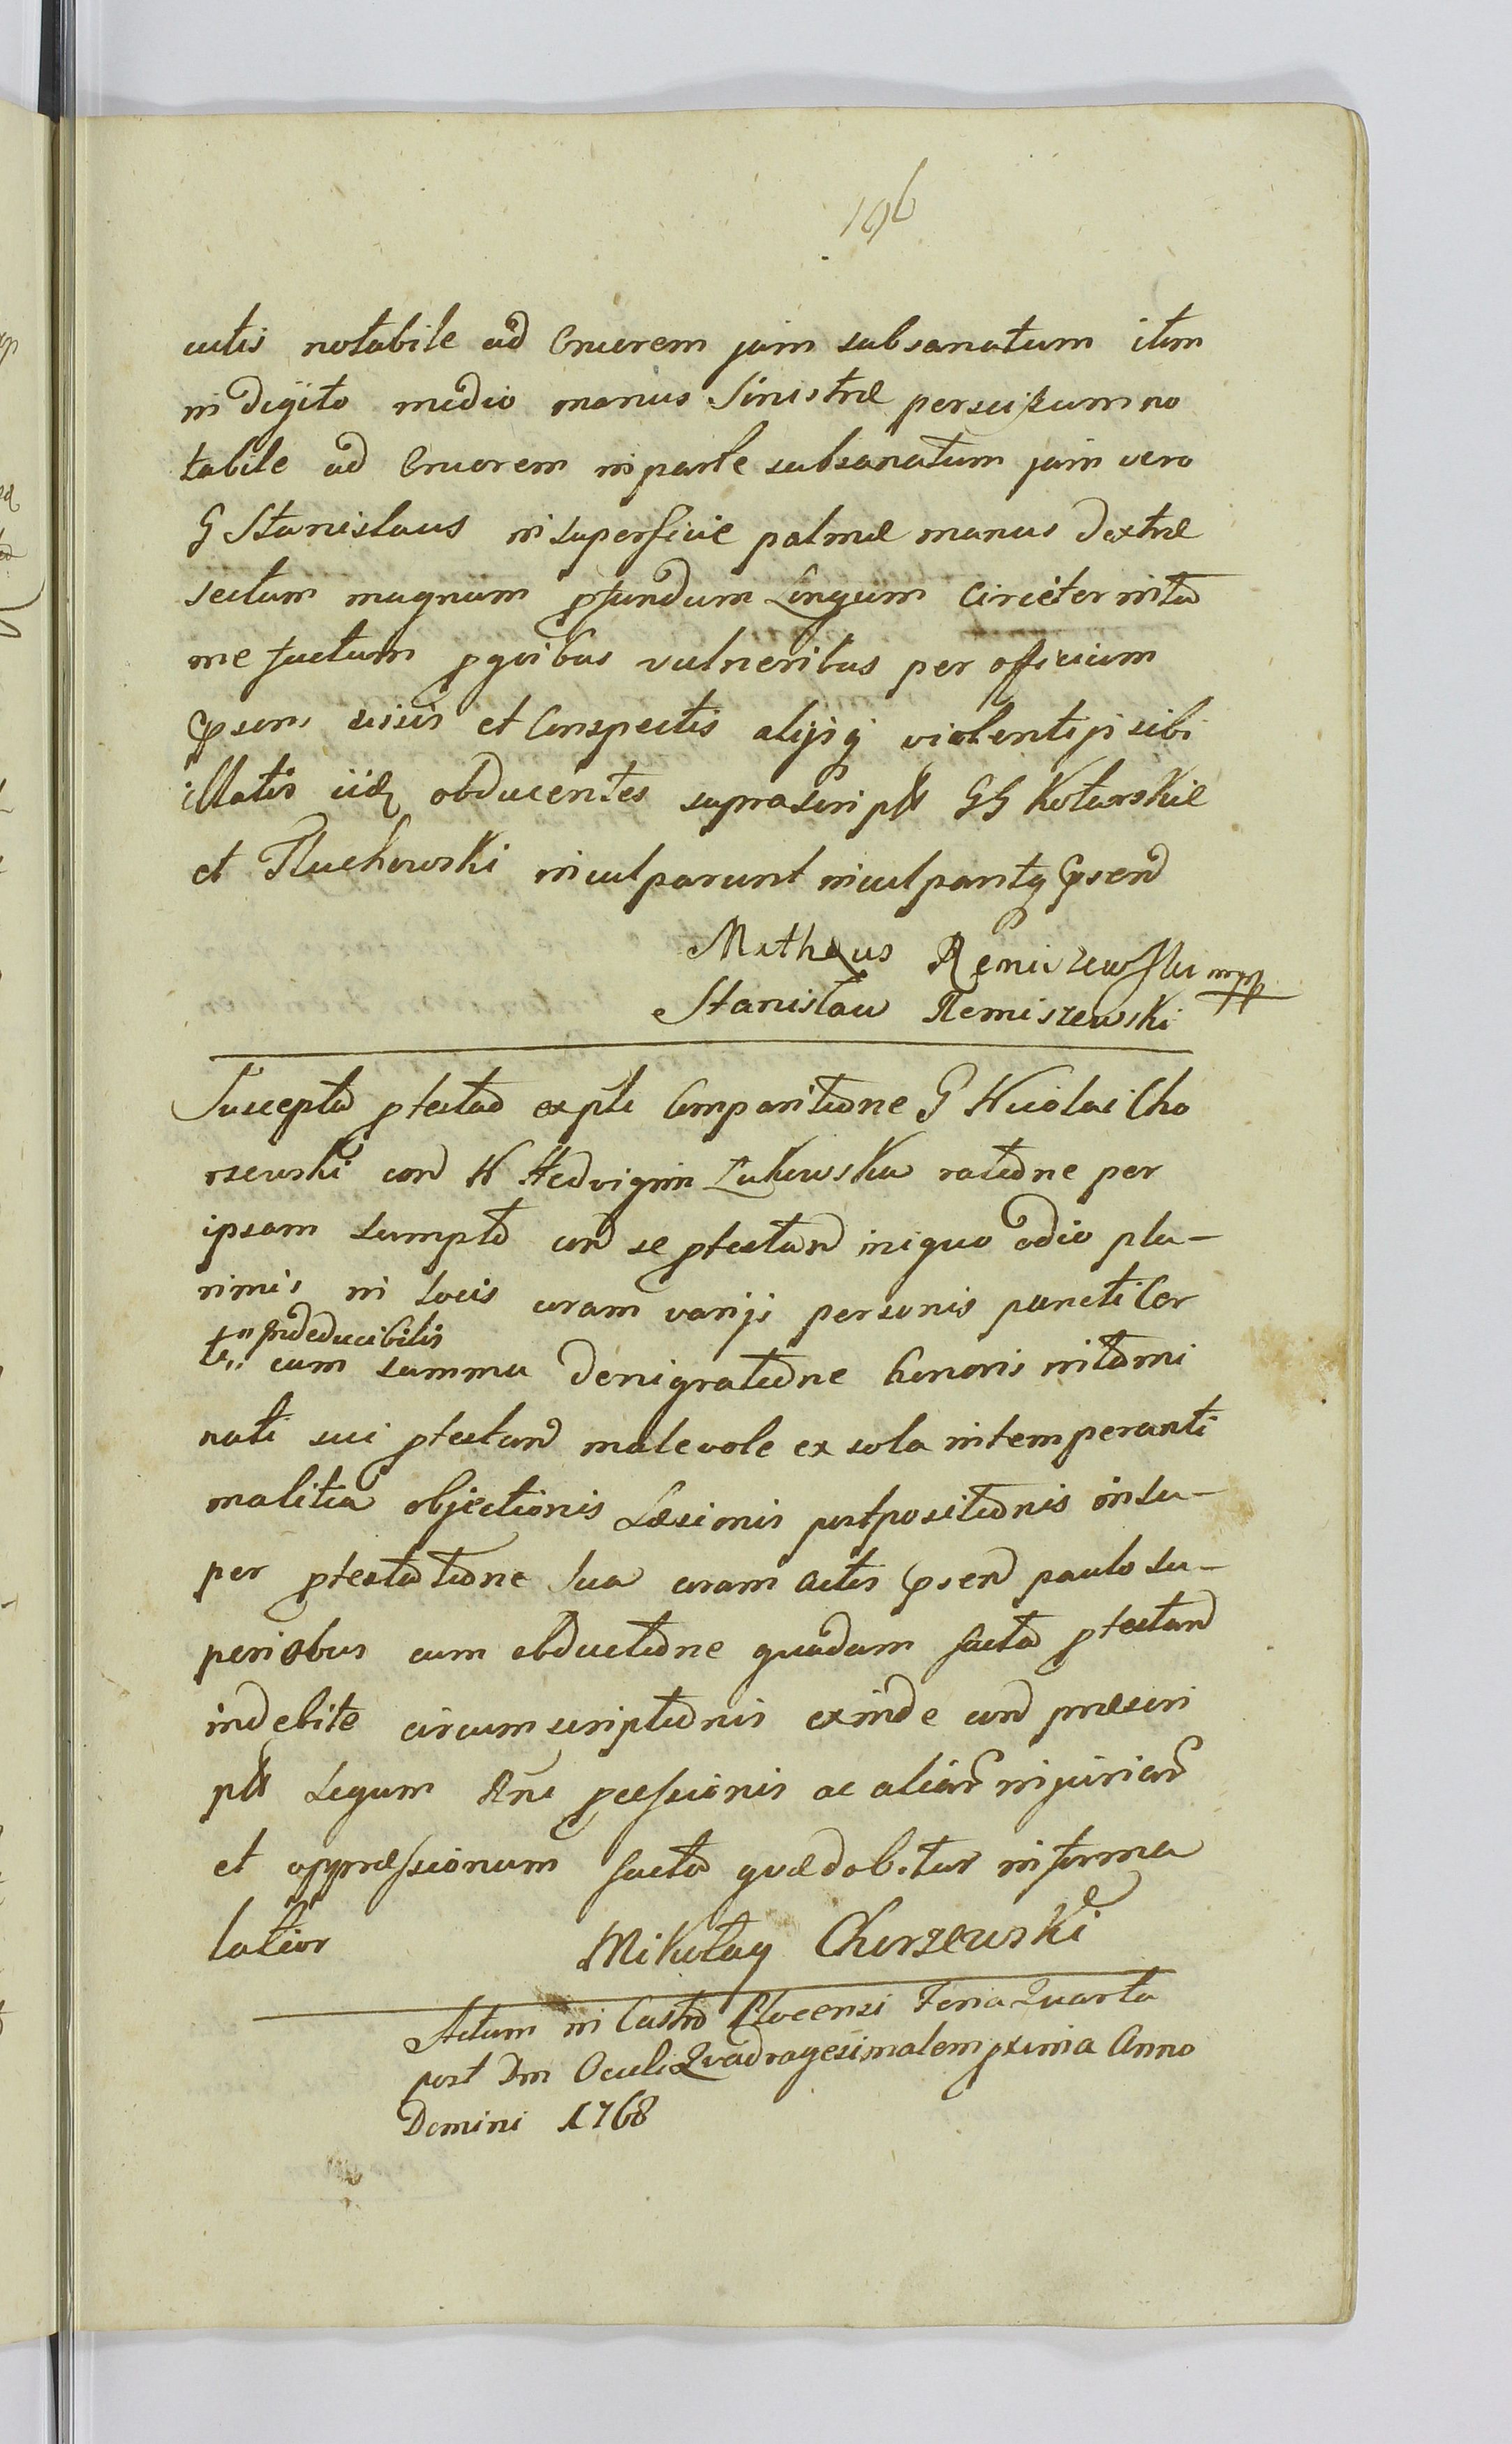 196
cutis notabile ad Cruorem jam subsanatum itm
in digito medio manus Sinistræ perscissum no
tabile ad Cruorem in parte subsanatum jam vero
G Stanislaus in superficie palmæ manus dextræ
sectum magnum pfundum Longum Circiter
me factum pquibus vulneribus per officium
psens visis et Conspectis alijsq violentijs sibi
illatis iidq obducentes suprascriptt GG Koturskie
et Tluchowski inculparunt inculpantq psend
Matheus Remiszewski mpp
Stanisław Remiszewski
Suscepta ptestad expte Comparitione G Nicolai Cho
rzewski cond N Hedvigim Zukowska ratione per
ipsam sumpta cond se ptestand iniquo odio plu-
rimis in Locis coram varijs personis puncti Cer
te in prdeducibilis
cum summa denigratione honoris
nati sui ptestand malevole ex sola intemperanti
malitia objectionis Læsionis postpositionis insu-
per ptestatione sua coram Actis psend paulo su-
perioribus cum obductione quadam facta ptestand
indebite circumscriptionis exinde cond præscri
ptt Legum Rni pcessionis ac aliar injuriar
et oppressionum facta quæ dabitur in forma
latior
Mikołay Chorzewski
Actum in Castro Plocensi Feria Quarta
post Dm Oculi Quadragesimalem pxima Anno
Domini 1768